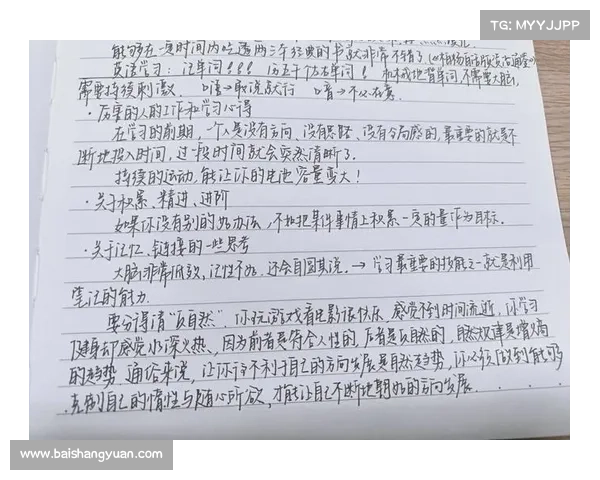 TG: MYYJJPP
能够在一定时间内吃透两三本经典的书就非常不错了
英语学习：记单词!!!! 历至于
单词! 机械地背单词,不需要大脑,
需要持续刺激.
·厉害的人的工作和学习心得
在学习的前期,一个人是没有方向、没有思路、没有全局感的,最重要的就是不
断地投入时间,过一段时间就会突然清晰了.
持续的运动,能让你的电池容量变大!
·关于积累、精进、进阶
如果你没有别的好办法,不如把某件事情上积累一定的量作为目标.
·关于记忆、链接的一些思考
大脑非常低效,记性不好,还会自圆其说.→学习最重要的技能之一就是利用
笔记的能力.
要分得清“反自然”.你玩游戏看电影很快乐、感觉不到时间流逝,你学习
健身却感觉水深火热、因为前者是符合人性的,后者是反自然的,自然规律是增熵
的趋势.通俗来说,让你
不利于自己的方向发展是自然趋势,你必须做到能够
克制自己的惰性与随心所欲,才能让自己不断地朝好的方向发展.
www.baishangyuan.com